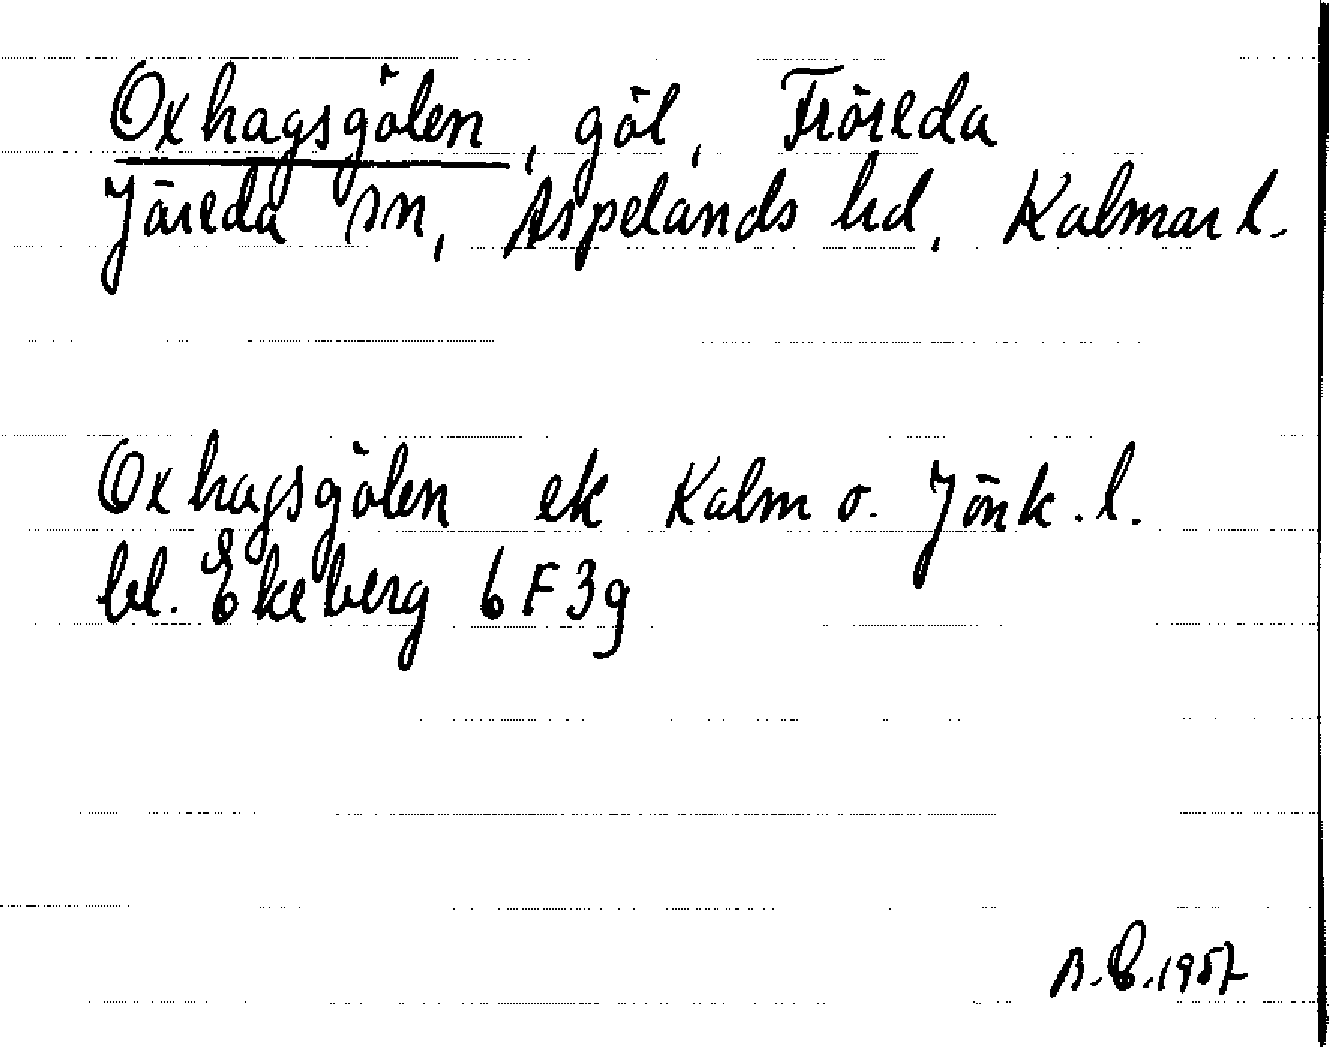 Oxhagsgölen, göl, Fröreda
Järeda sn, Aspelands hd, Kalmar l.
Oxhagsgölen ek Kalm o. Jönk. l.
bl. Ekeberg 6F3g
B.E. 1957